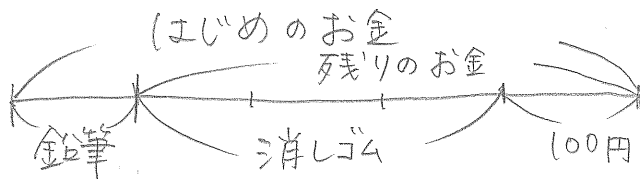 はじめのお金
残りのお金
鉛筆 消しゴム 100円